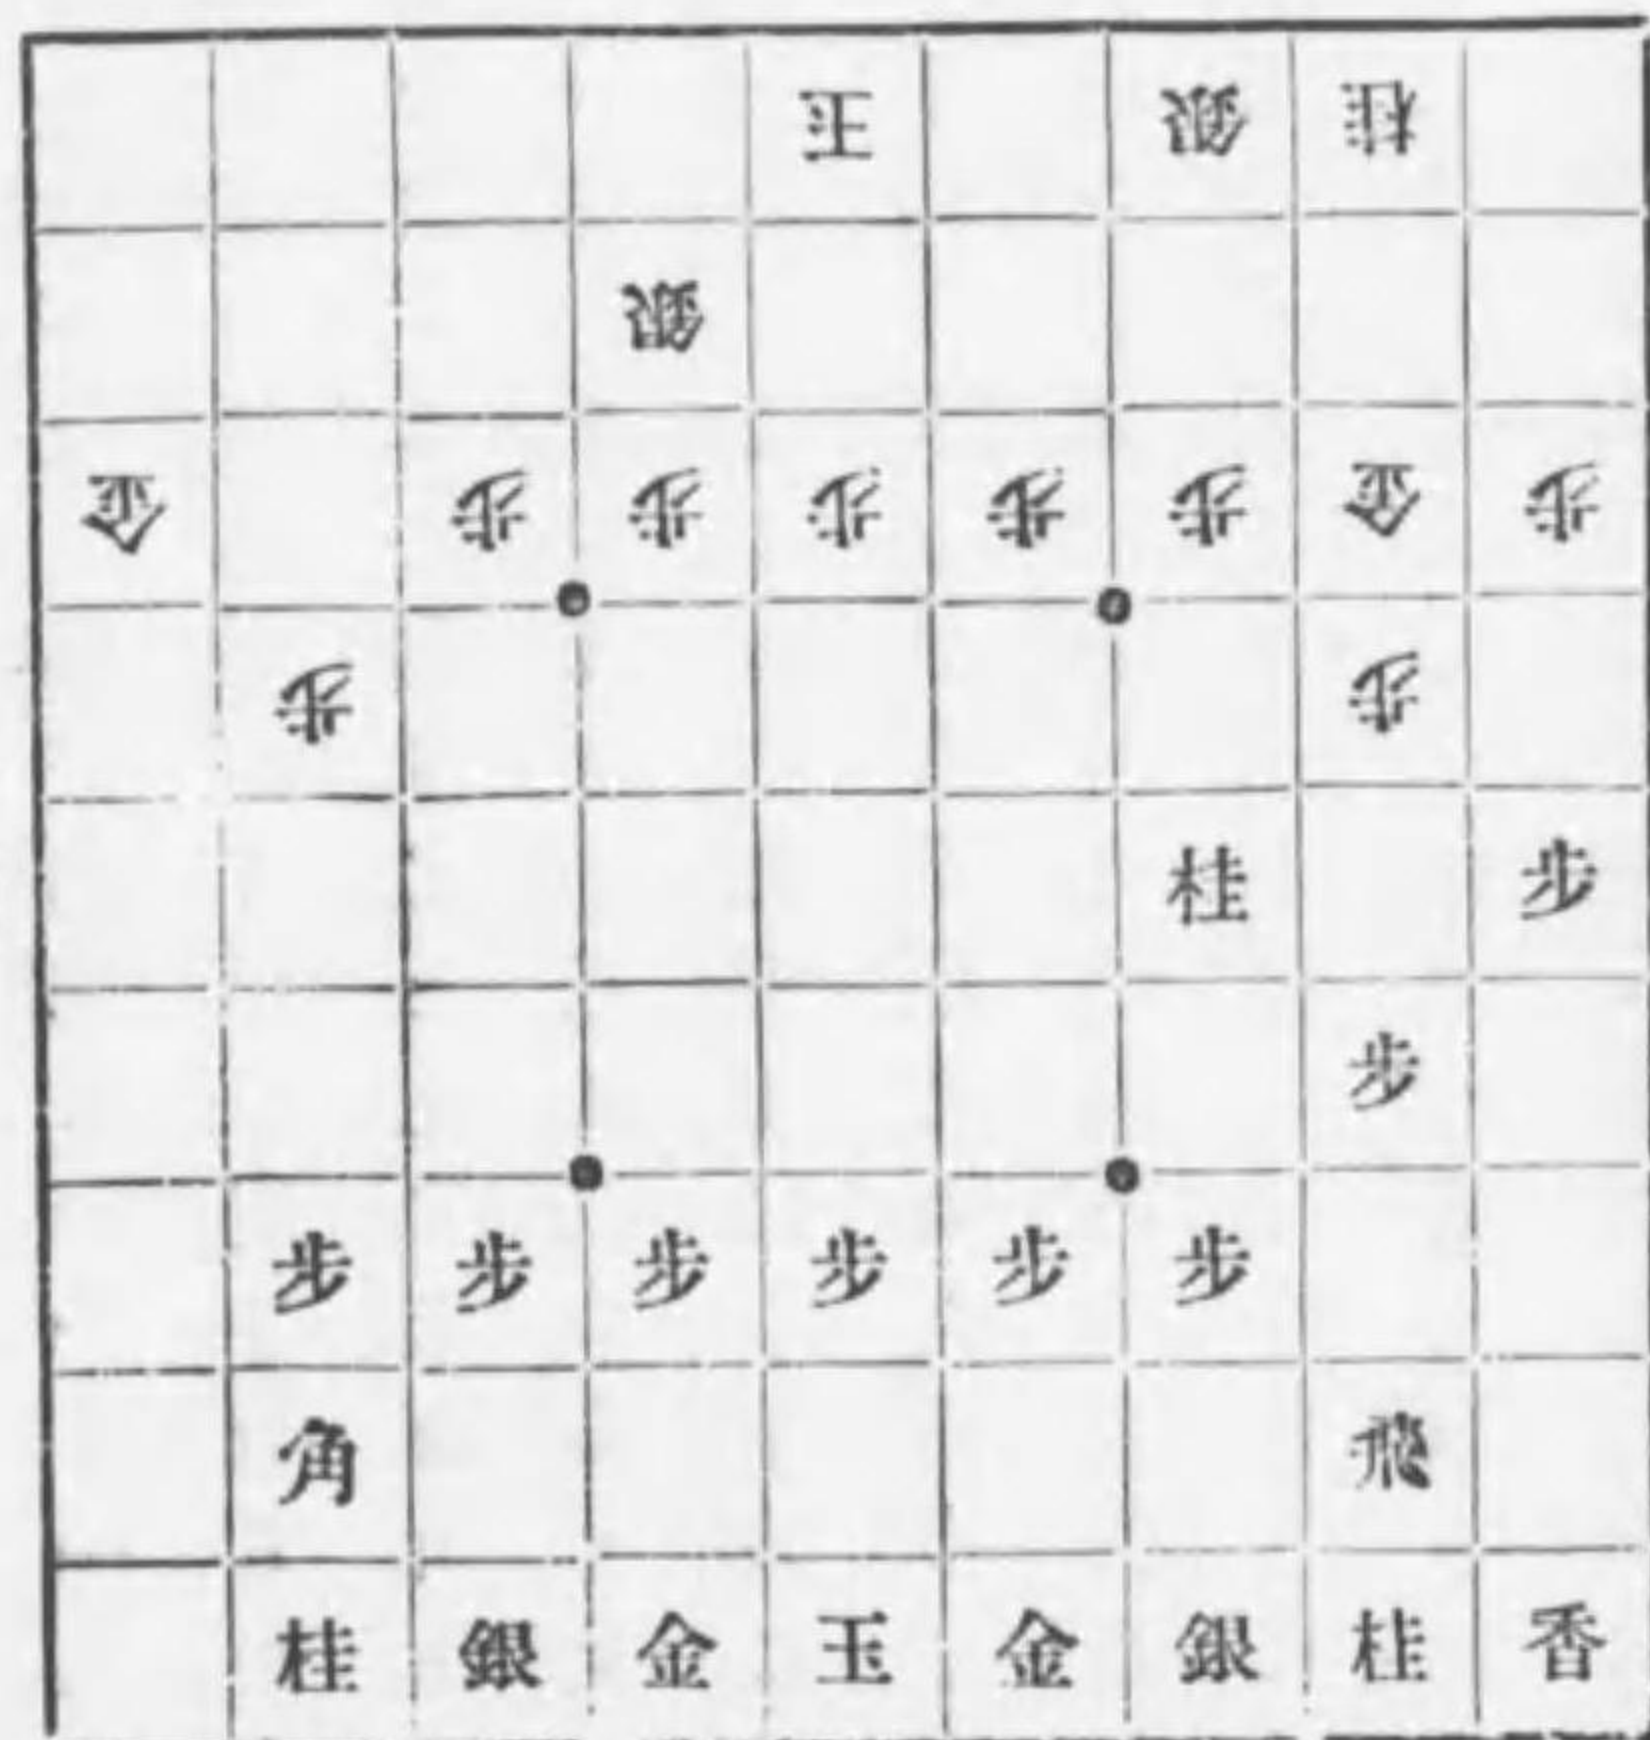 王銀桂
銀
金歩歩歩歩歩金歩
歩歩
桂歩
歩
歩歩歩歩歩歩
角飛
桂銀金玉金銀桂香